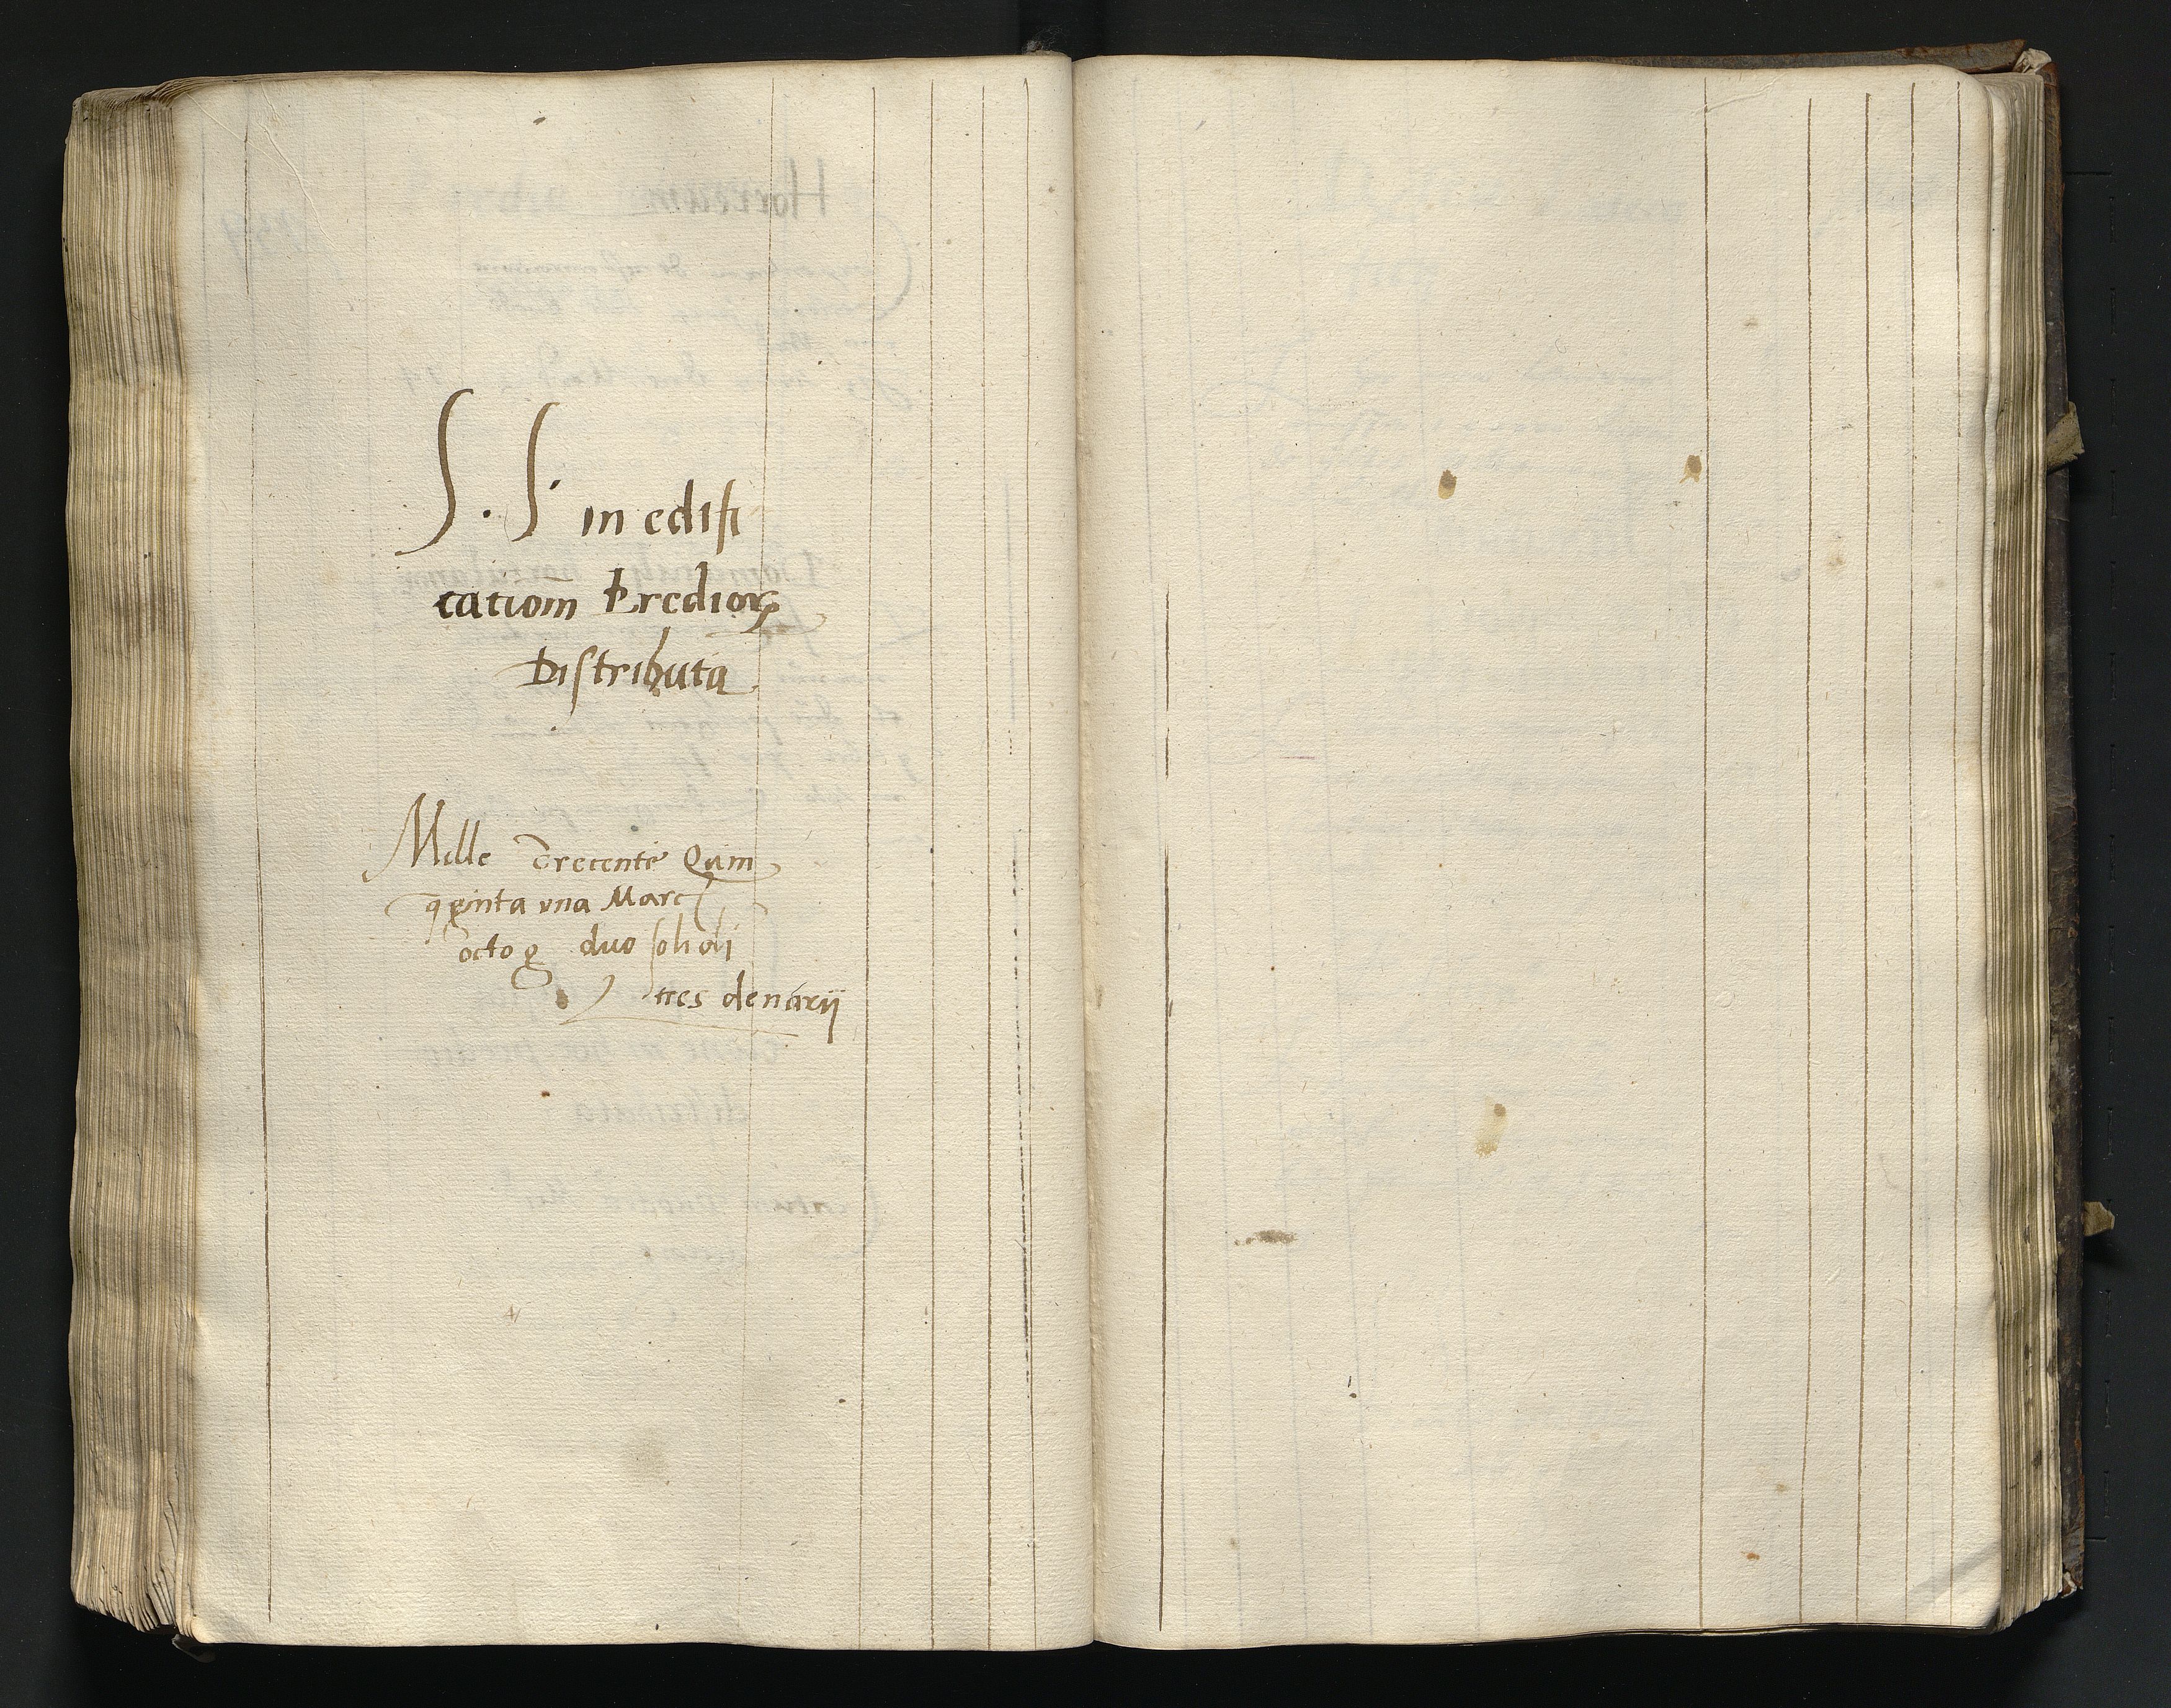 S. S in edifi
cationē Prediorꝝ
Distributa
Mille Trecente Quin
quginta vna Marc
octo g duo solidi
tres denarij